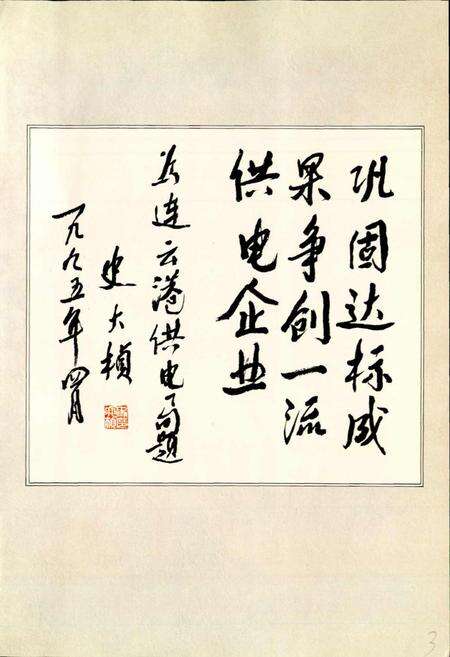 巩固达标成
果争创一流
供电企业
为连云港供电局题
史大桢
一九九五年四月
3